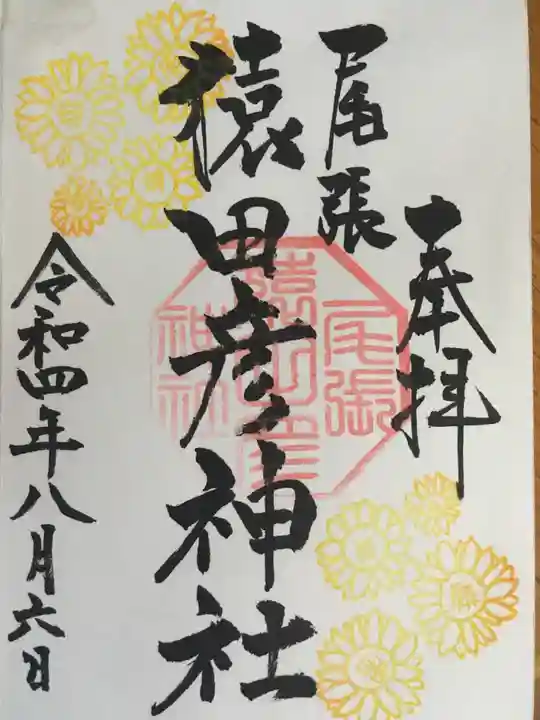 奉拝
尾張
猿田彦神社
尾張
猿田彦
神社
令和四年八月六日